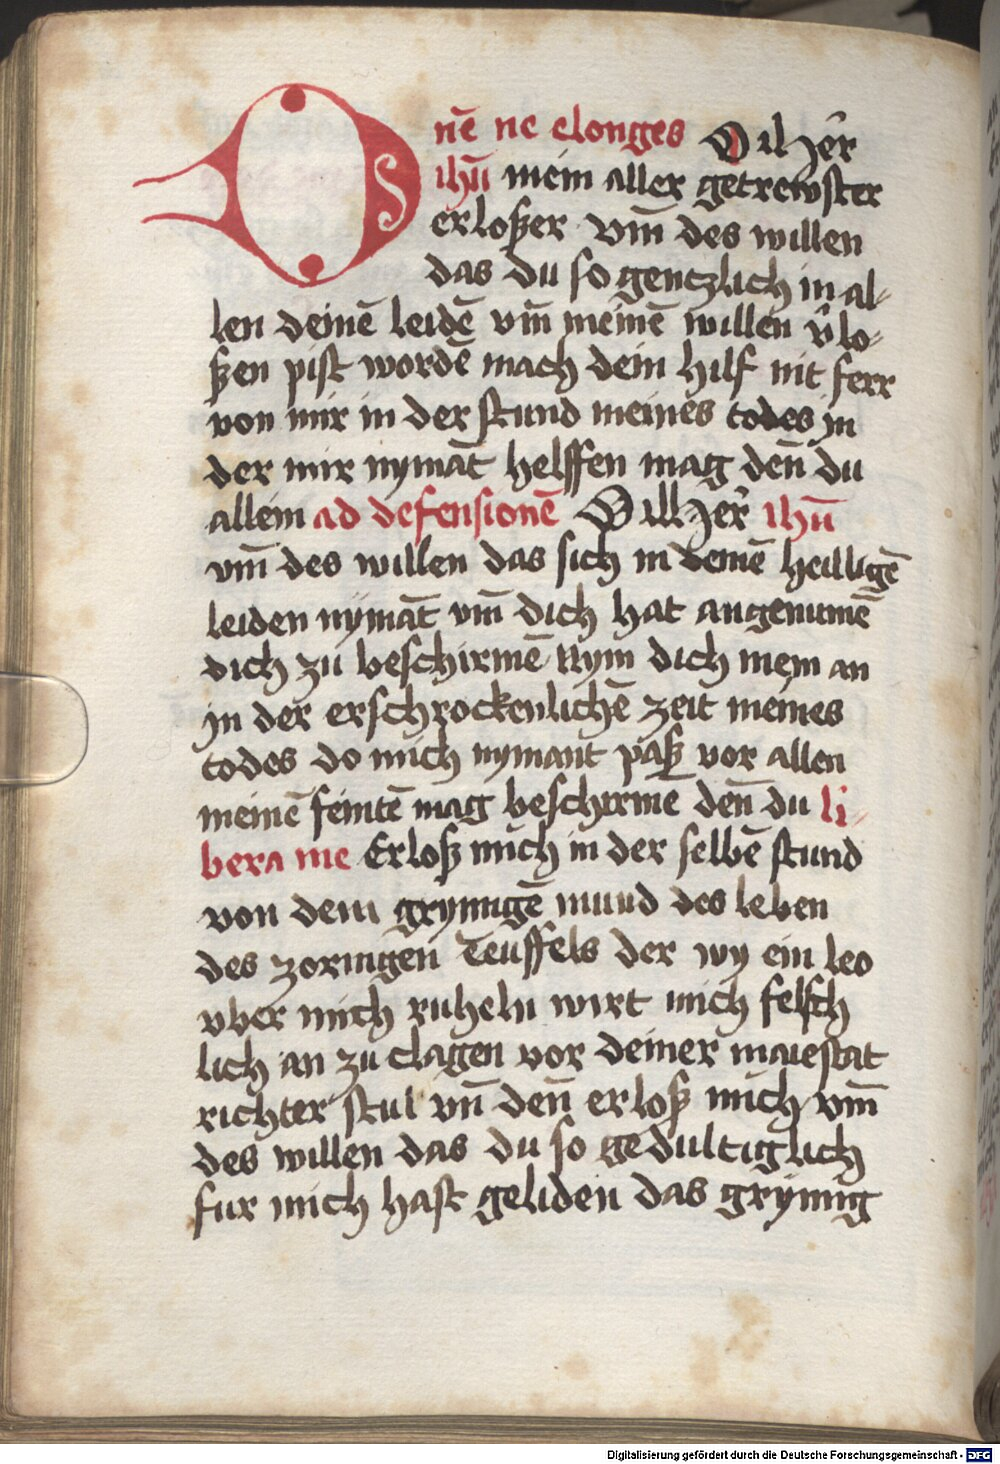 Onē ne elonges O ih her̃
ihū mein aller getrewster
erloßer vm̄ des willen
das du so gentzlich in al-
len deinē leidē vm̄ meinē willen v̄lo-
ßen pist wordē mach dein hilf nit ferr
von mir in der stund meines todes in
der mir nymāt helffen mag den̄ du
allein ad defensionē O ih her̃ ihū
vm̄ des willen das sich in deinē heilligē
leiden nymāt vm̄ dich hat angenumē
dich zu beschirmē Nym dich mein an
in der erschrockenlichē zeit meines
todes do mich nymant paß vor allen
meinē feintē mag beschirmē den̄ du li-
bera me Erloß mich in der selbē stund
von dem grymigē mund des leben
des zornigen Teuffels der wy ein leo
vber mich ruheln wirt mich felsch
lich an zu clagen vor deiner maiestat
richter stul vn̄ den̄ erloß mich vm̄
des willen das du so gedultiglich
fur mich hast geliden das grymig
Digitalisierung gefördert durch die Deutsche Forschungsgemeinschaft - DFG